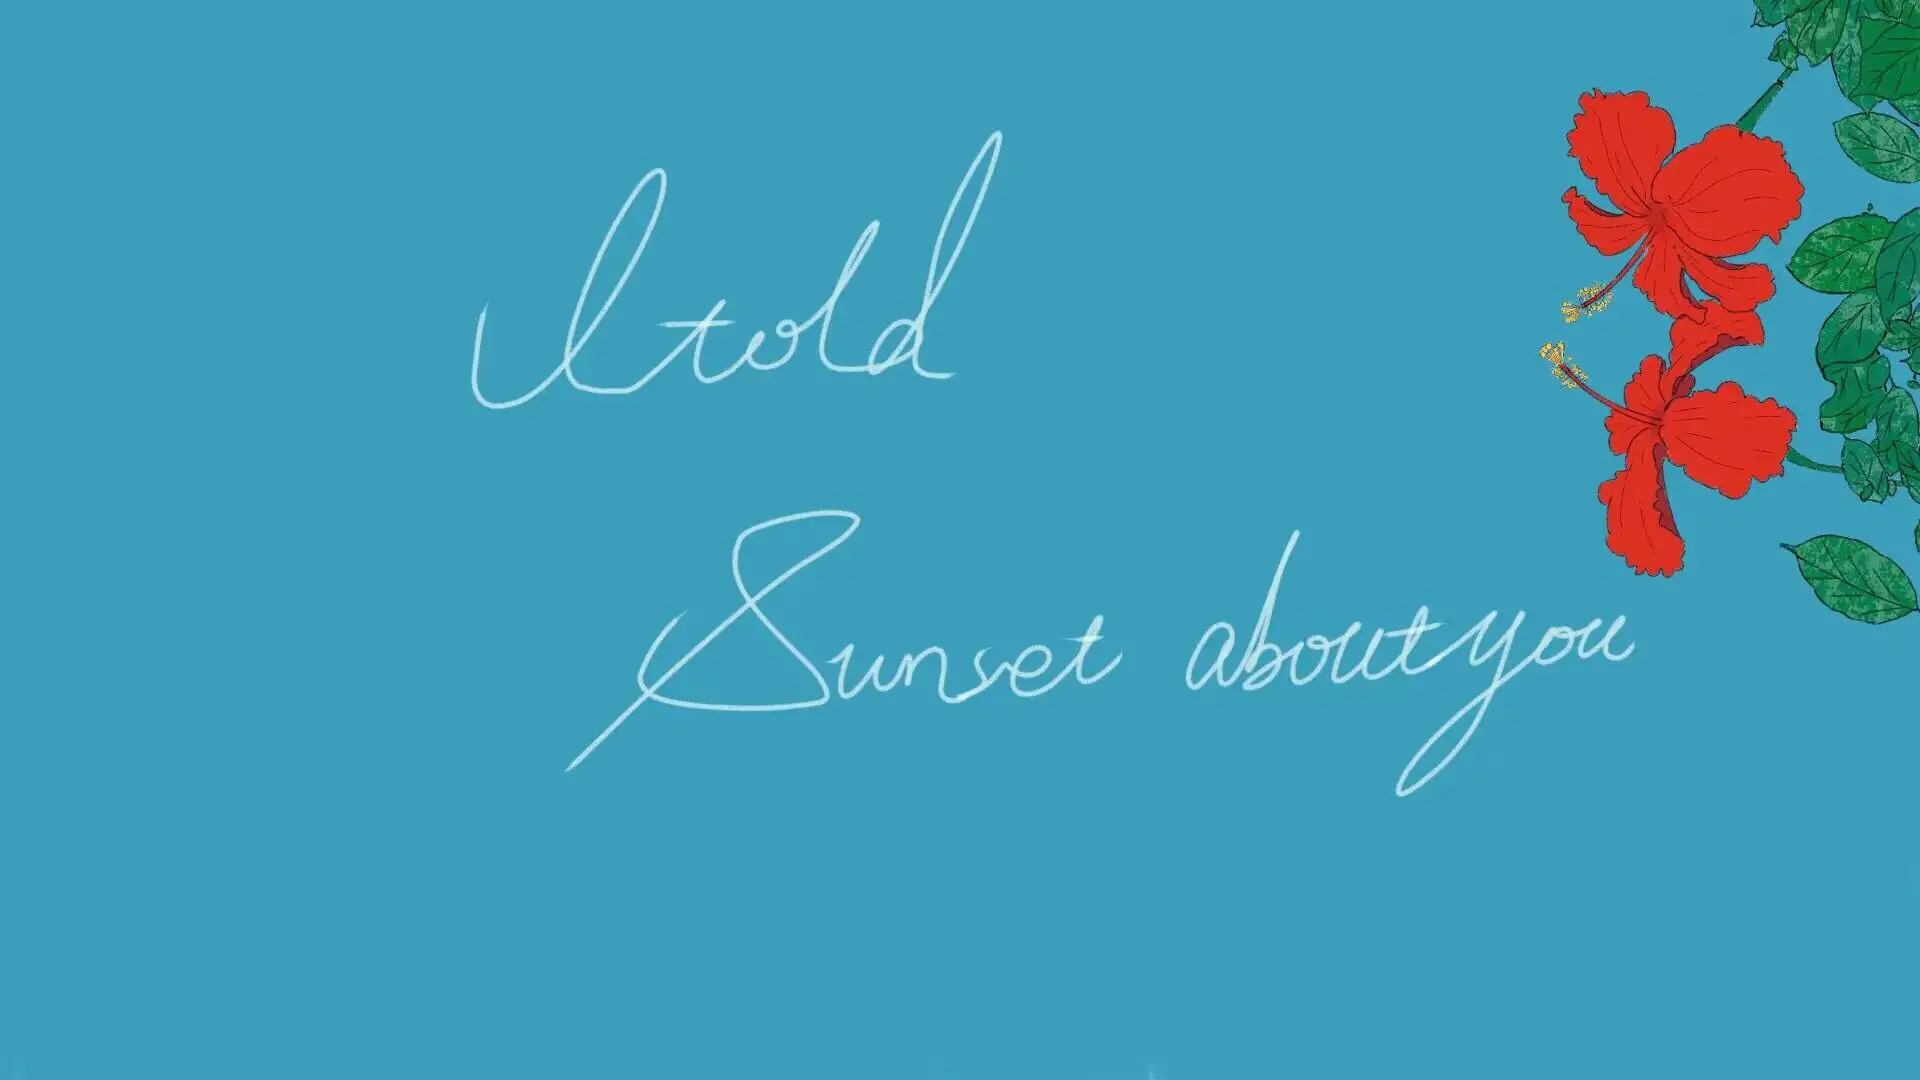 I told
Sunset about you